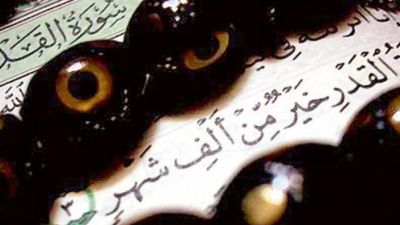 سُورَةُ القَد
ٱللَّهِ
ٱلْقَدْرِ خَيْرٌ مِّنْ أَلْفِ شَهْرٍ ٣